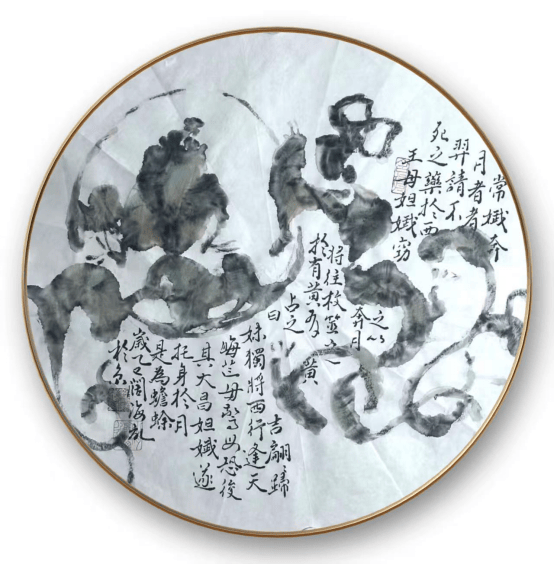 常娥奔
月者者
羿請不
死之藥於西
王母姮娥窃
之以
奔月
將往枚筮之
於有黃有黃
占之
曰
吉翩歸
妹獨將西行逢天
晦芒毋驚毋恐後
其大昌姮娥遂
托身於月
是為蟾蜍
歲乙
於京